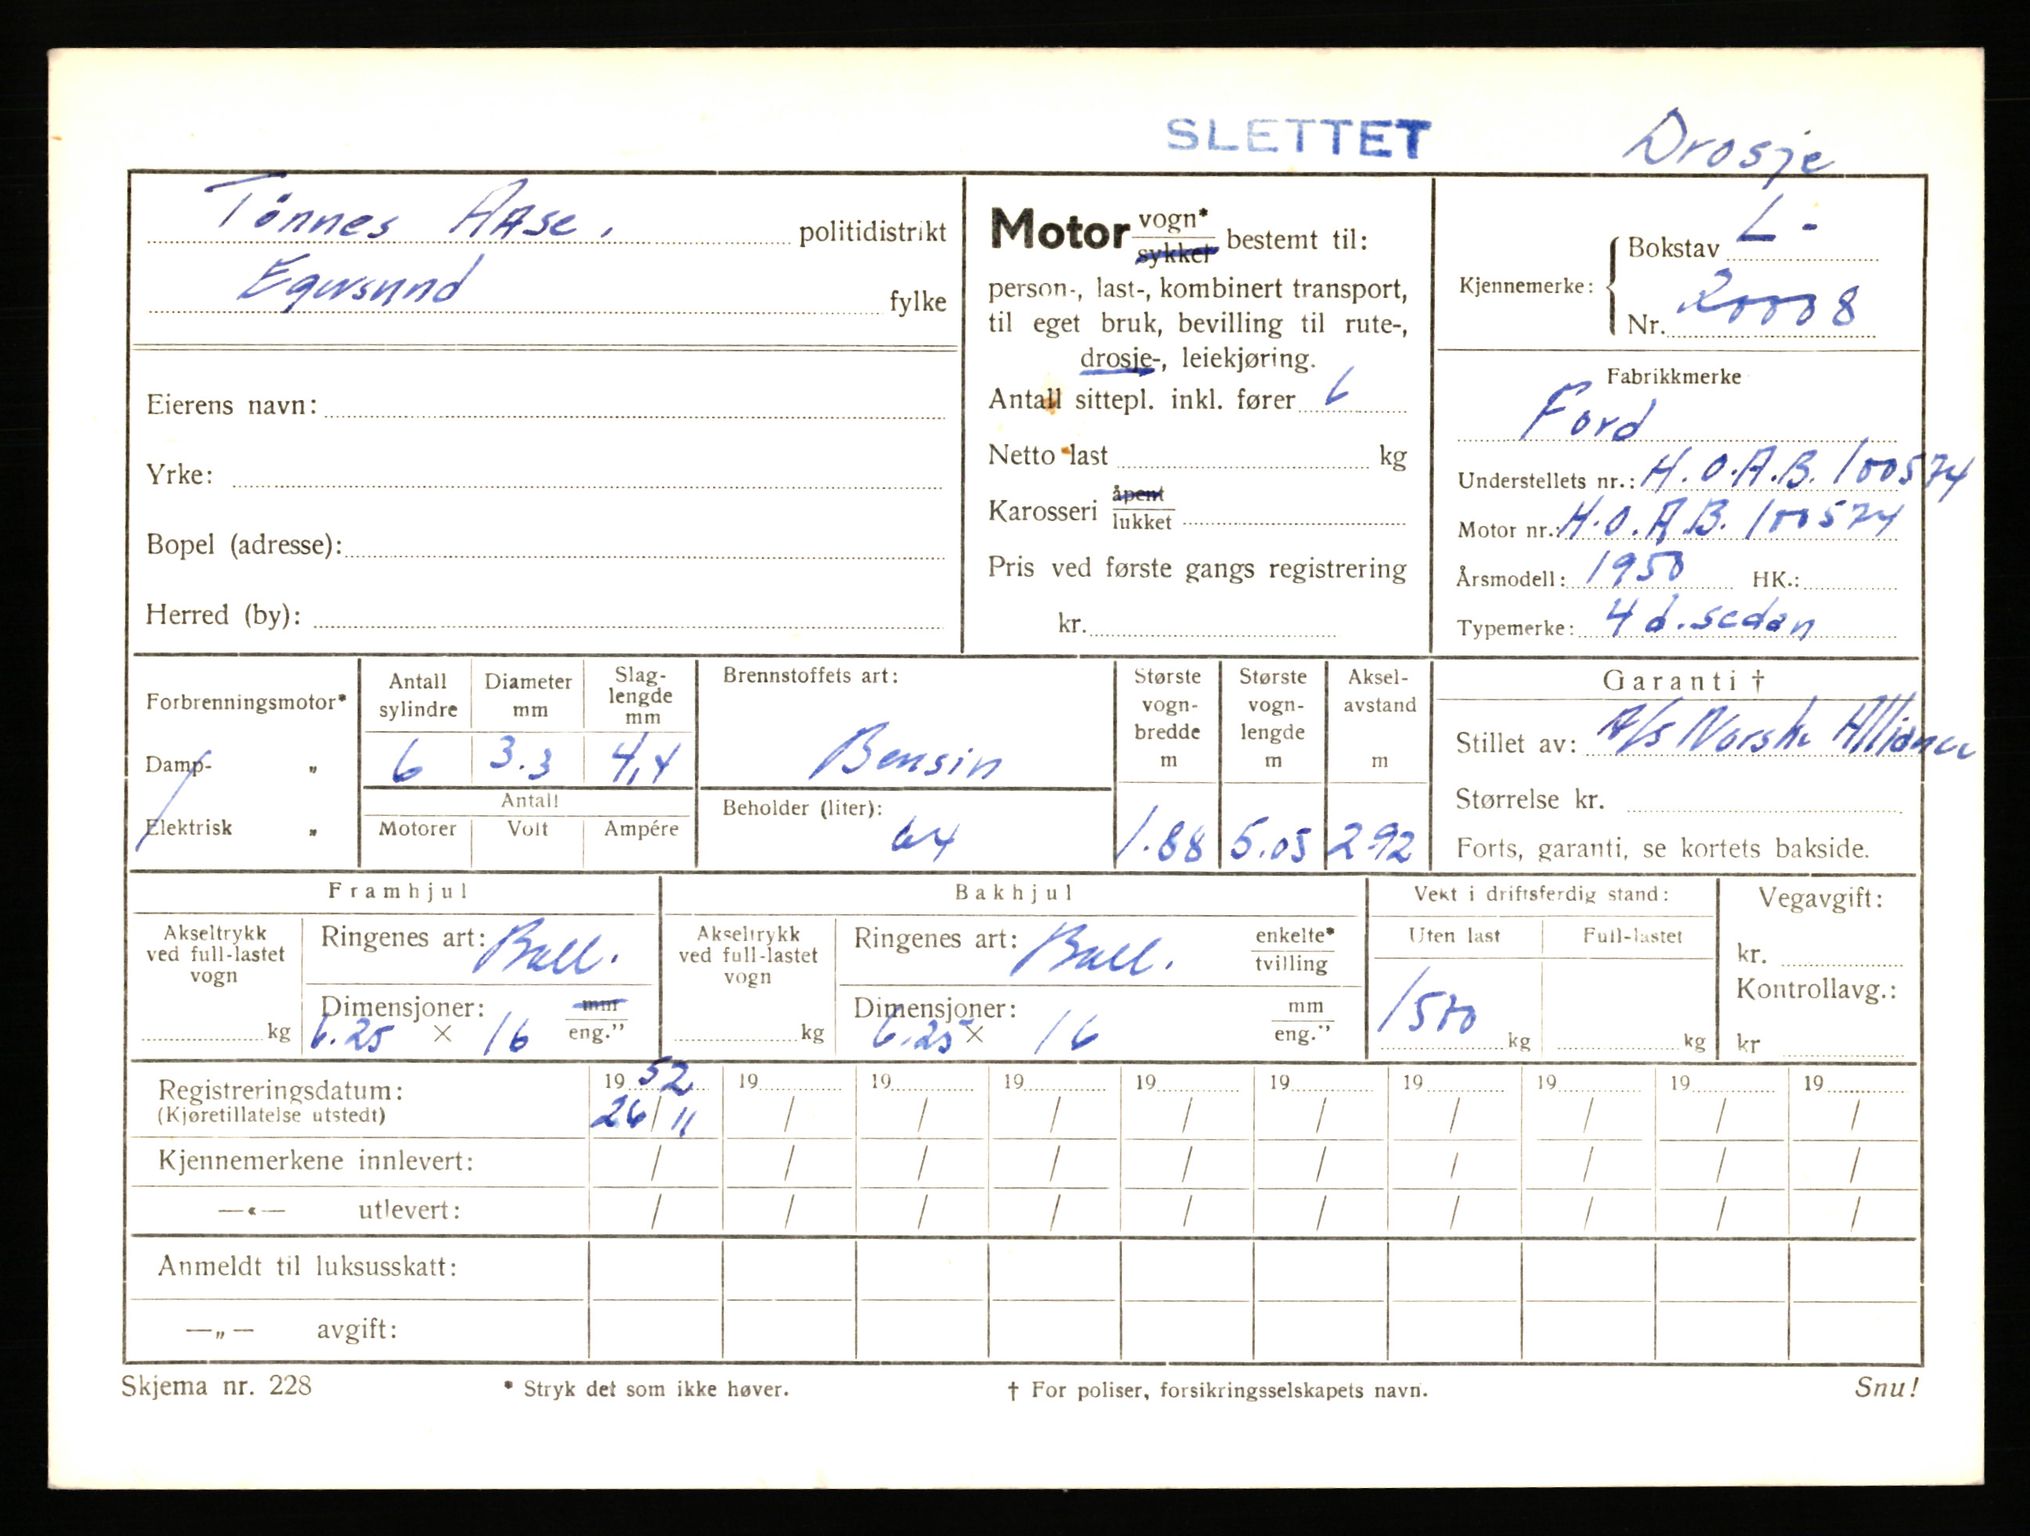 SLETTET Drosje
Tönnes Aase. politidistrikt
Egersund fylke
Eierens navn:
Yrke:
Bopel (adresse):
Herred (by):
Motor vogn* sykkel bestemt til:
person-, last-, kombinert transport,
til eget bruk, bevilling til rute-,
drosje-, leiekjøring.
Antall sittepl. inkl. fører 6
Netto last kg
Karosseri åpent lukket
Pris ved første gangs registrering
kr.
Kjennemerke: Bokstav L-
Nr. 20008
Fabrikkmerke
Ford
Understellets nr.: H.O.A.B. 100574
Motor nr.: H.O.A.B. 100574
Årsmodell: 1950 HK.:
Typemerke: 4 d. sedan
Forbrenningsmotor*
Damp- „
Elektrisk „
Antall sylindre
Diameter mm
Slag-lengde mm
6 3.3 4,4
Antall
Motorer Volt Ampére
Brennstoffets art:
Bensin
Beholder (liter):
64
Største vogn-bredde m
1.88
Største vogn-lengde m
5.05
Aksel-avstand m
2.92
Garanti †
Stillet av: A/s Norske Alliance
Størrelse kr.
Forts, garanti, se kortets bakside.
Framhjul
Akseltrykk ved full-lastet vogn
kg
Ringenes art: Ball.
Dimensjoner: mm eng."
6.25 × 16
Bakhjul
Akseltrykk ved full-lastet vogn
kg
Ringenes art: Ball. enkelte* tvilling
Dimensjoner: mm eng."
6.25 × 16
Vekt i driftsferdig stand:
Uten last Full-lastet
1570 kg kg
Vegavgift:
kr.
Kontrollavg.:
kr
Registreringsdatum: 19 52 19 19 19 19 19 19 19 19 19
(Kjøretillatelse utstedt) 26/11 / / / / / / / / /
Kjennemerkene innlevert: / / / / / / / / / /
—«— utlevert: / / / / / / / / / /
Anmeldt til luksusskatt:
—„— avgift:
Skjema nr. 228 * Stryk det som ikke høver. † For poliser, forsikringsselskapets navn. Snu!